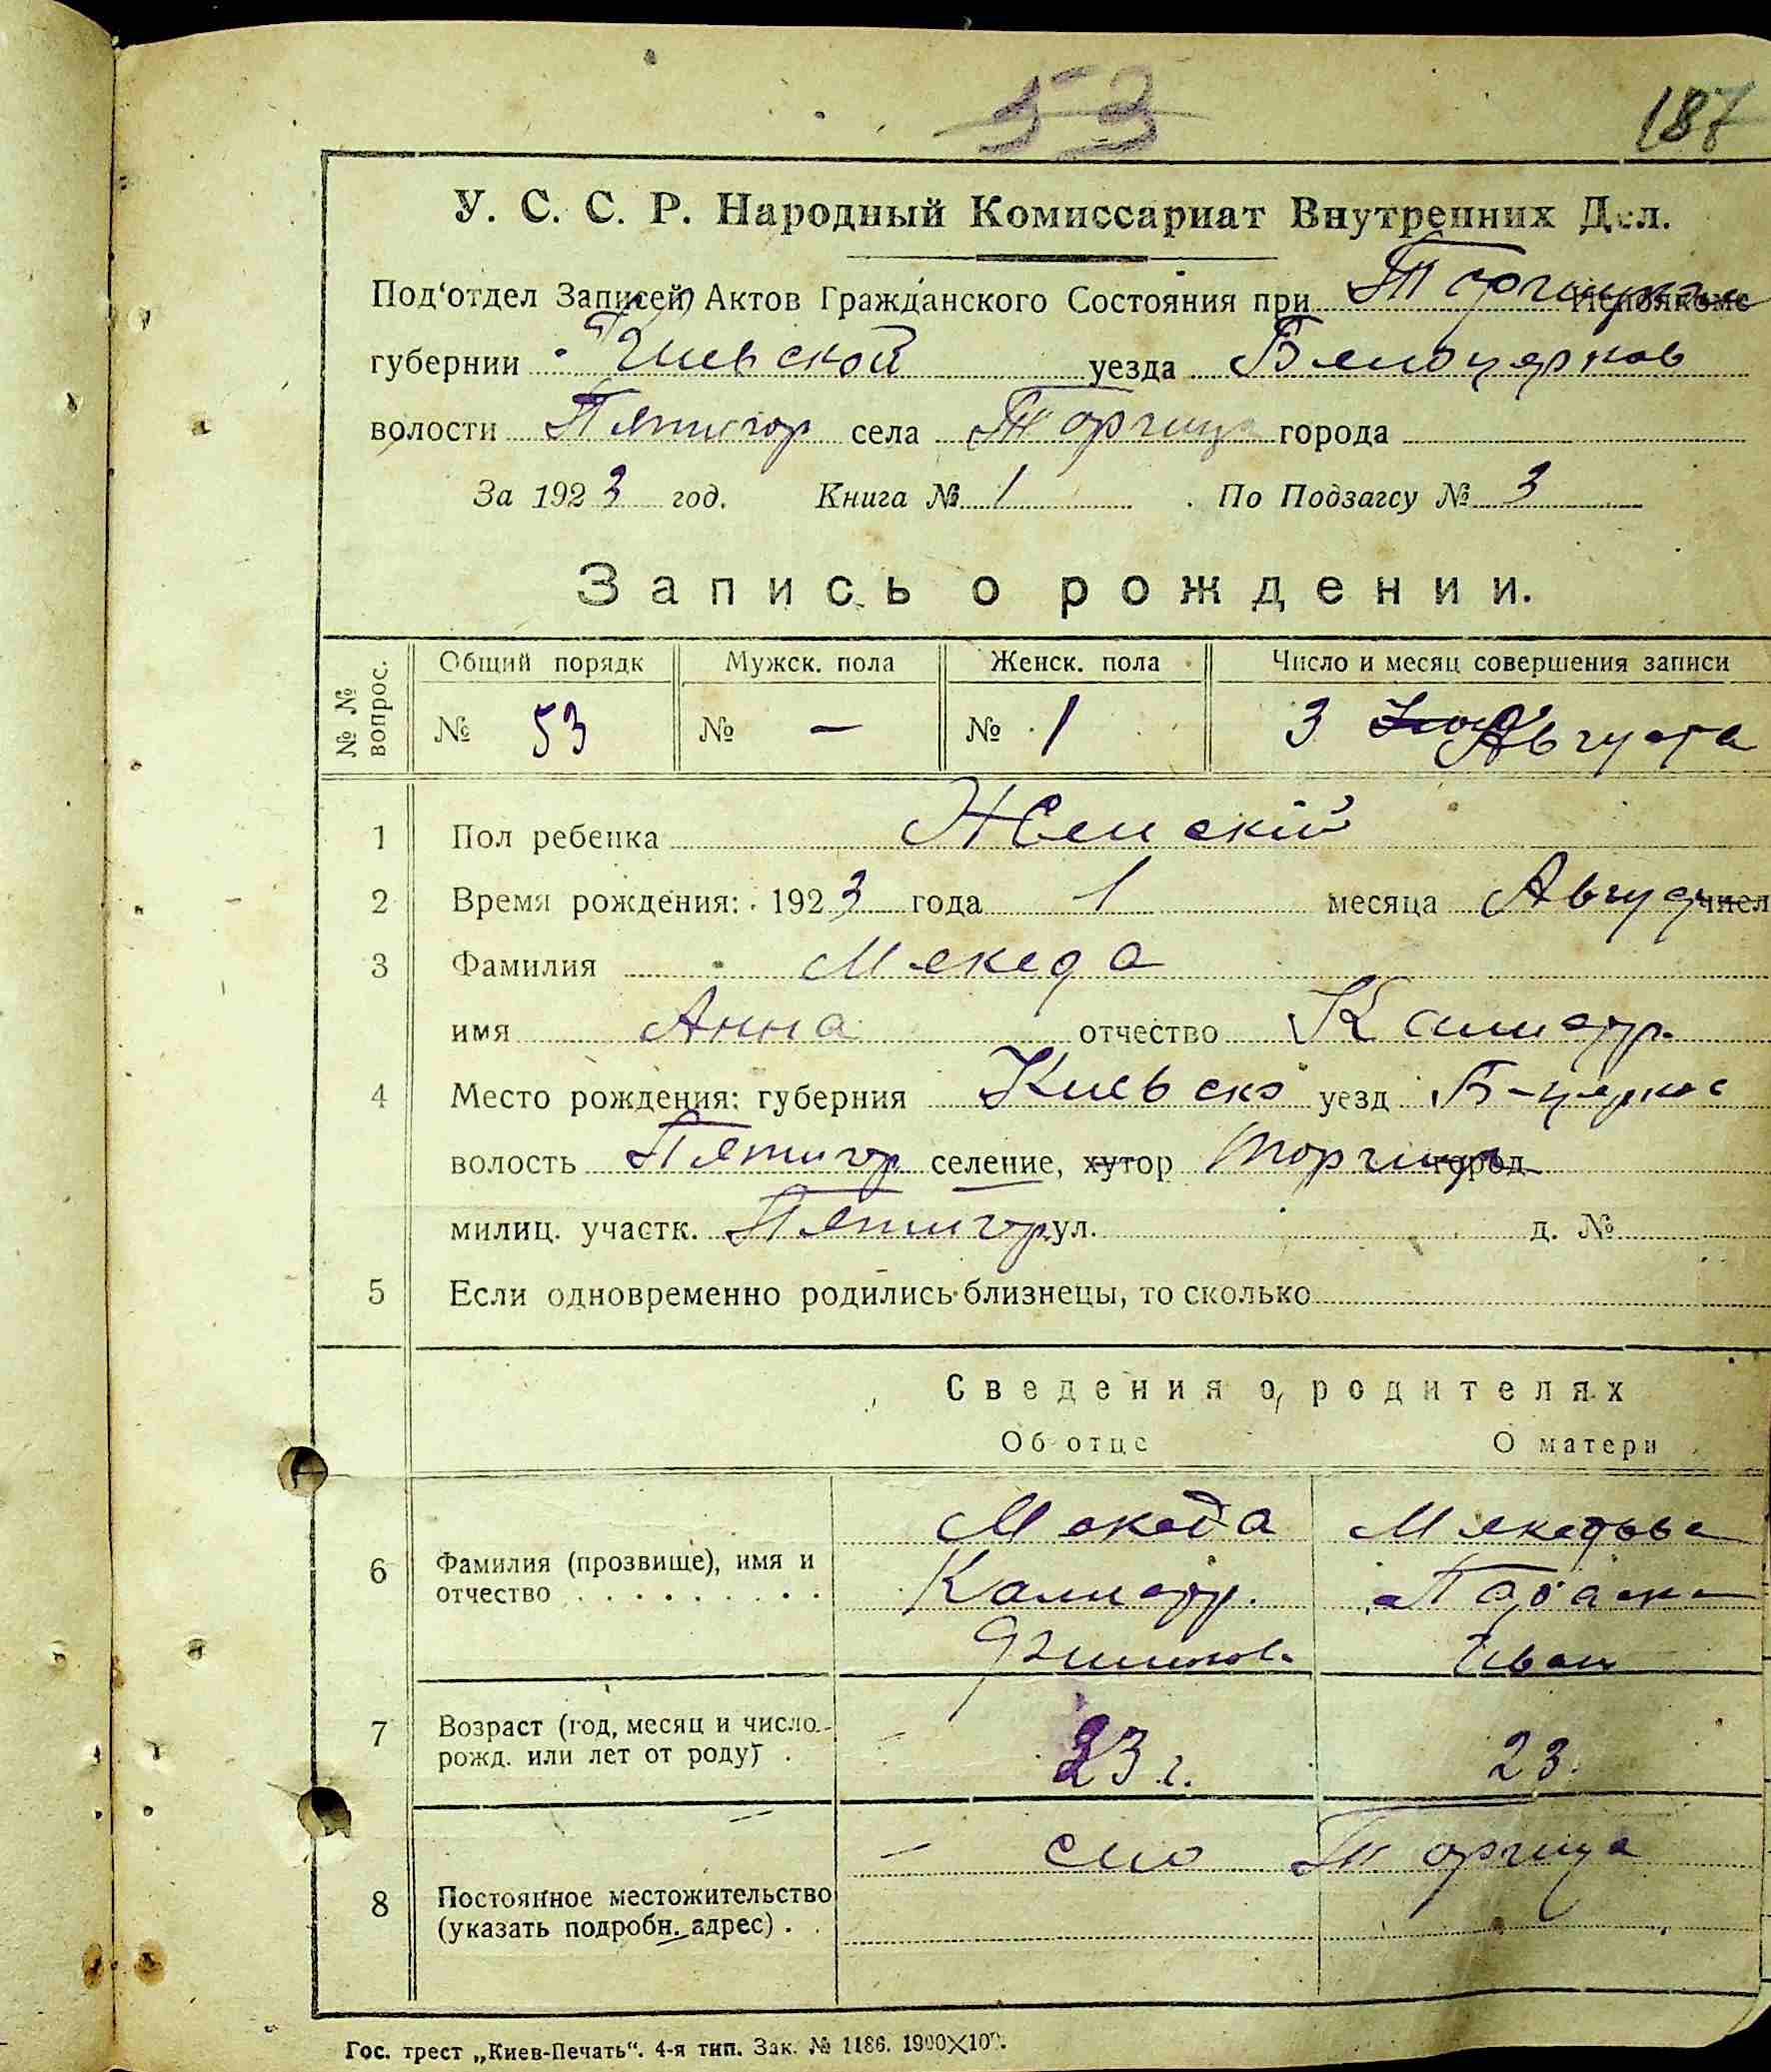 53
187
У. С. С. Р. Народный Комиссариат Внутренних Дел.
Под‘отдел Записей Актов Гражданского Состояния при Исполкоме
губернии Киевской уезда Белоцерков
волости Пятигор села Торчица города
За 1923 год. Книга № 1 По Подзагсу № 3
Запись о рождении.
№ № вопрос.
Общий порядк Мужск. пола Женск. пола Число и месяц совершения записи
№ 53 № — № 1 3 Августа
1 Пол ребенка Женскій
2 Время рождения: 1923 года 1 месяца Август числ
3 Фамилия Мекеда
имя Анна отчество Калистр.
4 Место рождения: губерния Киевско уезд Б-церков
волость Пятигор селение, хутор Торчица город
милиц. участк. Пятигор ул. д. №
5 Если одновременно родились близнецы, то сколько
Сведения о родителях
Об отце О матери
Мекеда Мекедова
6 Фамилия (прозвище), имя и
отчество Калистр. Параска
Иван
7 Возраст (год, месяц и число
рожд. или лет от роду) 23 г. 23.
село Торчица
8 Постоянное местожительство
(указать подробн. адрес)
Гос. трест „Киев-Печать“. 4-я тип. Зак. № 1186. 1900×100.